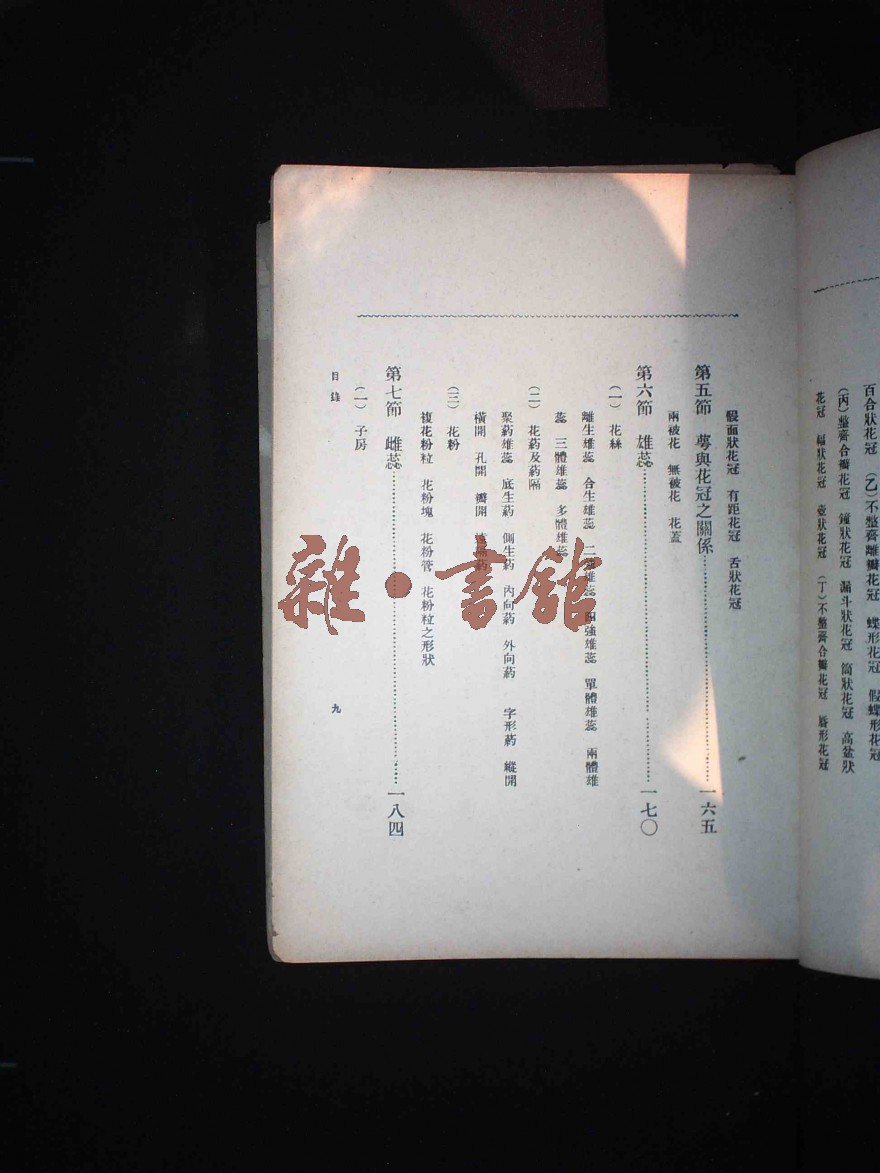 百合狀花冠　(乙)不整齊離瓣花冠　蝶形花冠　假蝶形花冠
(丙)整齊合瓣花冠　鐘狀花冠　漏斗狀花冠　筒狀花冠　高盆狀
花冠　輻狀花冠　壺狀花冠　(丁)不整齊合瓣花冠　唇形花冠
假面狀花冠　有距花冠　舌狀花冠
第五節　萼與花冠之關係……一六五
兩被花　無被花　花蓋
第六節　雄蕊……一七〇
(一)　花絲
離生雄蕊　合生雄蕊　二强雄蕊　四强雄蕊　單體雄蕊　兩體雄
蕊　三體雄蕊　多體雄蕊
(二)　花葯及葯隔
聚葯雄蕊　底生葯　側生葯　內向葯　外向葯　字形葯　縱開
橫開　孔開　瓣開　葯
(三)　花粉
複花粉粒　花粉塊　花粉管　花粉粒之形狀
第七節　雌蕊……一八四
(一)　子房
目錄　九
雜·書館